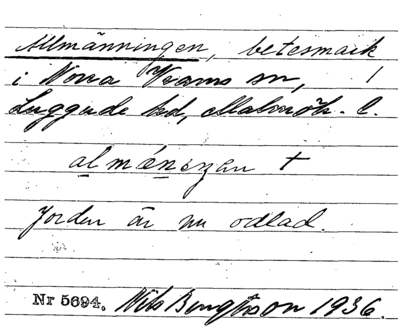 Allmänningen, betesmark
i Norra Vrams sn, /
Luggude hd, Malmöh. l.
almäningan †
Jorden är nu odlad.
Nr 5694. Nils Bengtsson 1936.